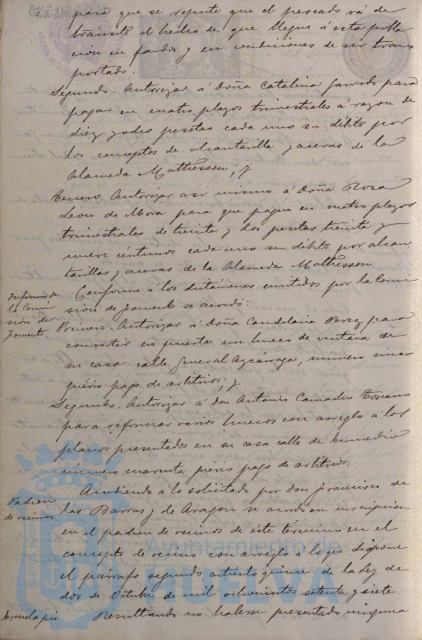 para que se repute que el pescado vá de
tránsito el hecho de que llegue á esta pobla
cion en fardos y en condiciones de ser trans
portado.
Segundo. Autorizar á Doña Catalina Garrido para
pagar en cuatro plazos trimestrales á razon de
diez y ocho pesetas cada uno su débito por
los conceptos de alcantarilla y aceras de la
Alameda Mathessen; y
Tercero. Autorizar asi mismo á Doña Rosa
Leon de Mora para que pague en cuatro plazos
trimestrales de treinta y dos pesetas treinta y
nueve céntimos cada uno su débito por alcan
tarillas y aceras de la Alameda Mathessen
Informe de
la Comi
sión de
Fomento
Conforme á los dictámenes emitidos por la Comi
sión de Fomento se acordó:
Primero. Autorizar á Doña Candelaria Perez para
convertir en puerta un hueco de ventana de
su casa calle General Azcárraga, número cinco
prévio pago de arbitrios; y
Segundo. Autorizar á don Antonio Camacho Toscano
para reformar varios huecos con arreglo á los
planos presentados en su casa calle de
número cuarenta prévio pago de arbitrios.
Padron
de vecinos
Accediendo á lo solicitado por Don Francisco de
las Barras y de Aragon se acordó su inscripcion
en el padron de vecinos de este término en el
concepto de vecino con arreglo á lo que dispone
el párrafo segundo artículo quince de la Ley de
dos de Octubre de mil ochocientos setenta y siete
Resultando no haberse presentado ninguna
Ayuntamiento de
HUELVA